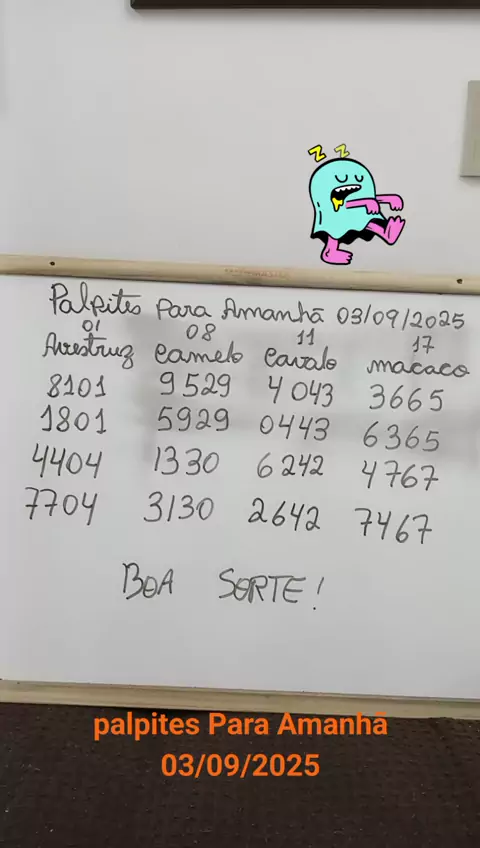 Z Z
Palpites Para Amanhã 03/09/2025
01 08 11 17
Avestruz Camelo Cavalo macaco
8101 9529 4043 3665
1801 5929 0443 6365
4404 1330 6242 4767
7704 3130 2642 7467
BOA SORTE!
palpites Para Amanhã
03/09/2025